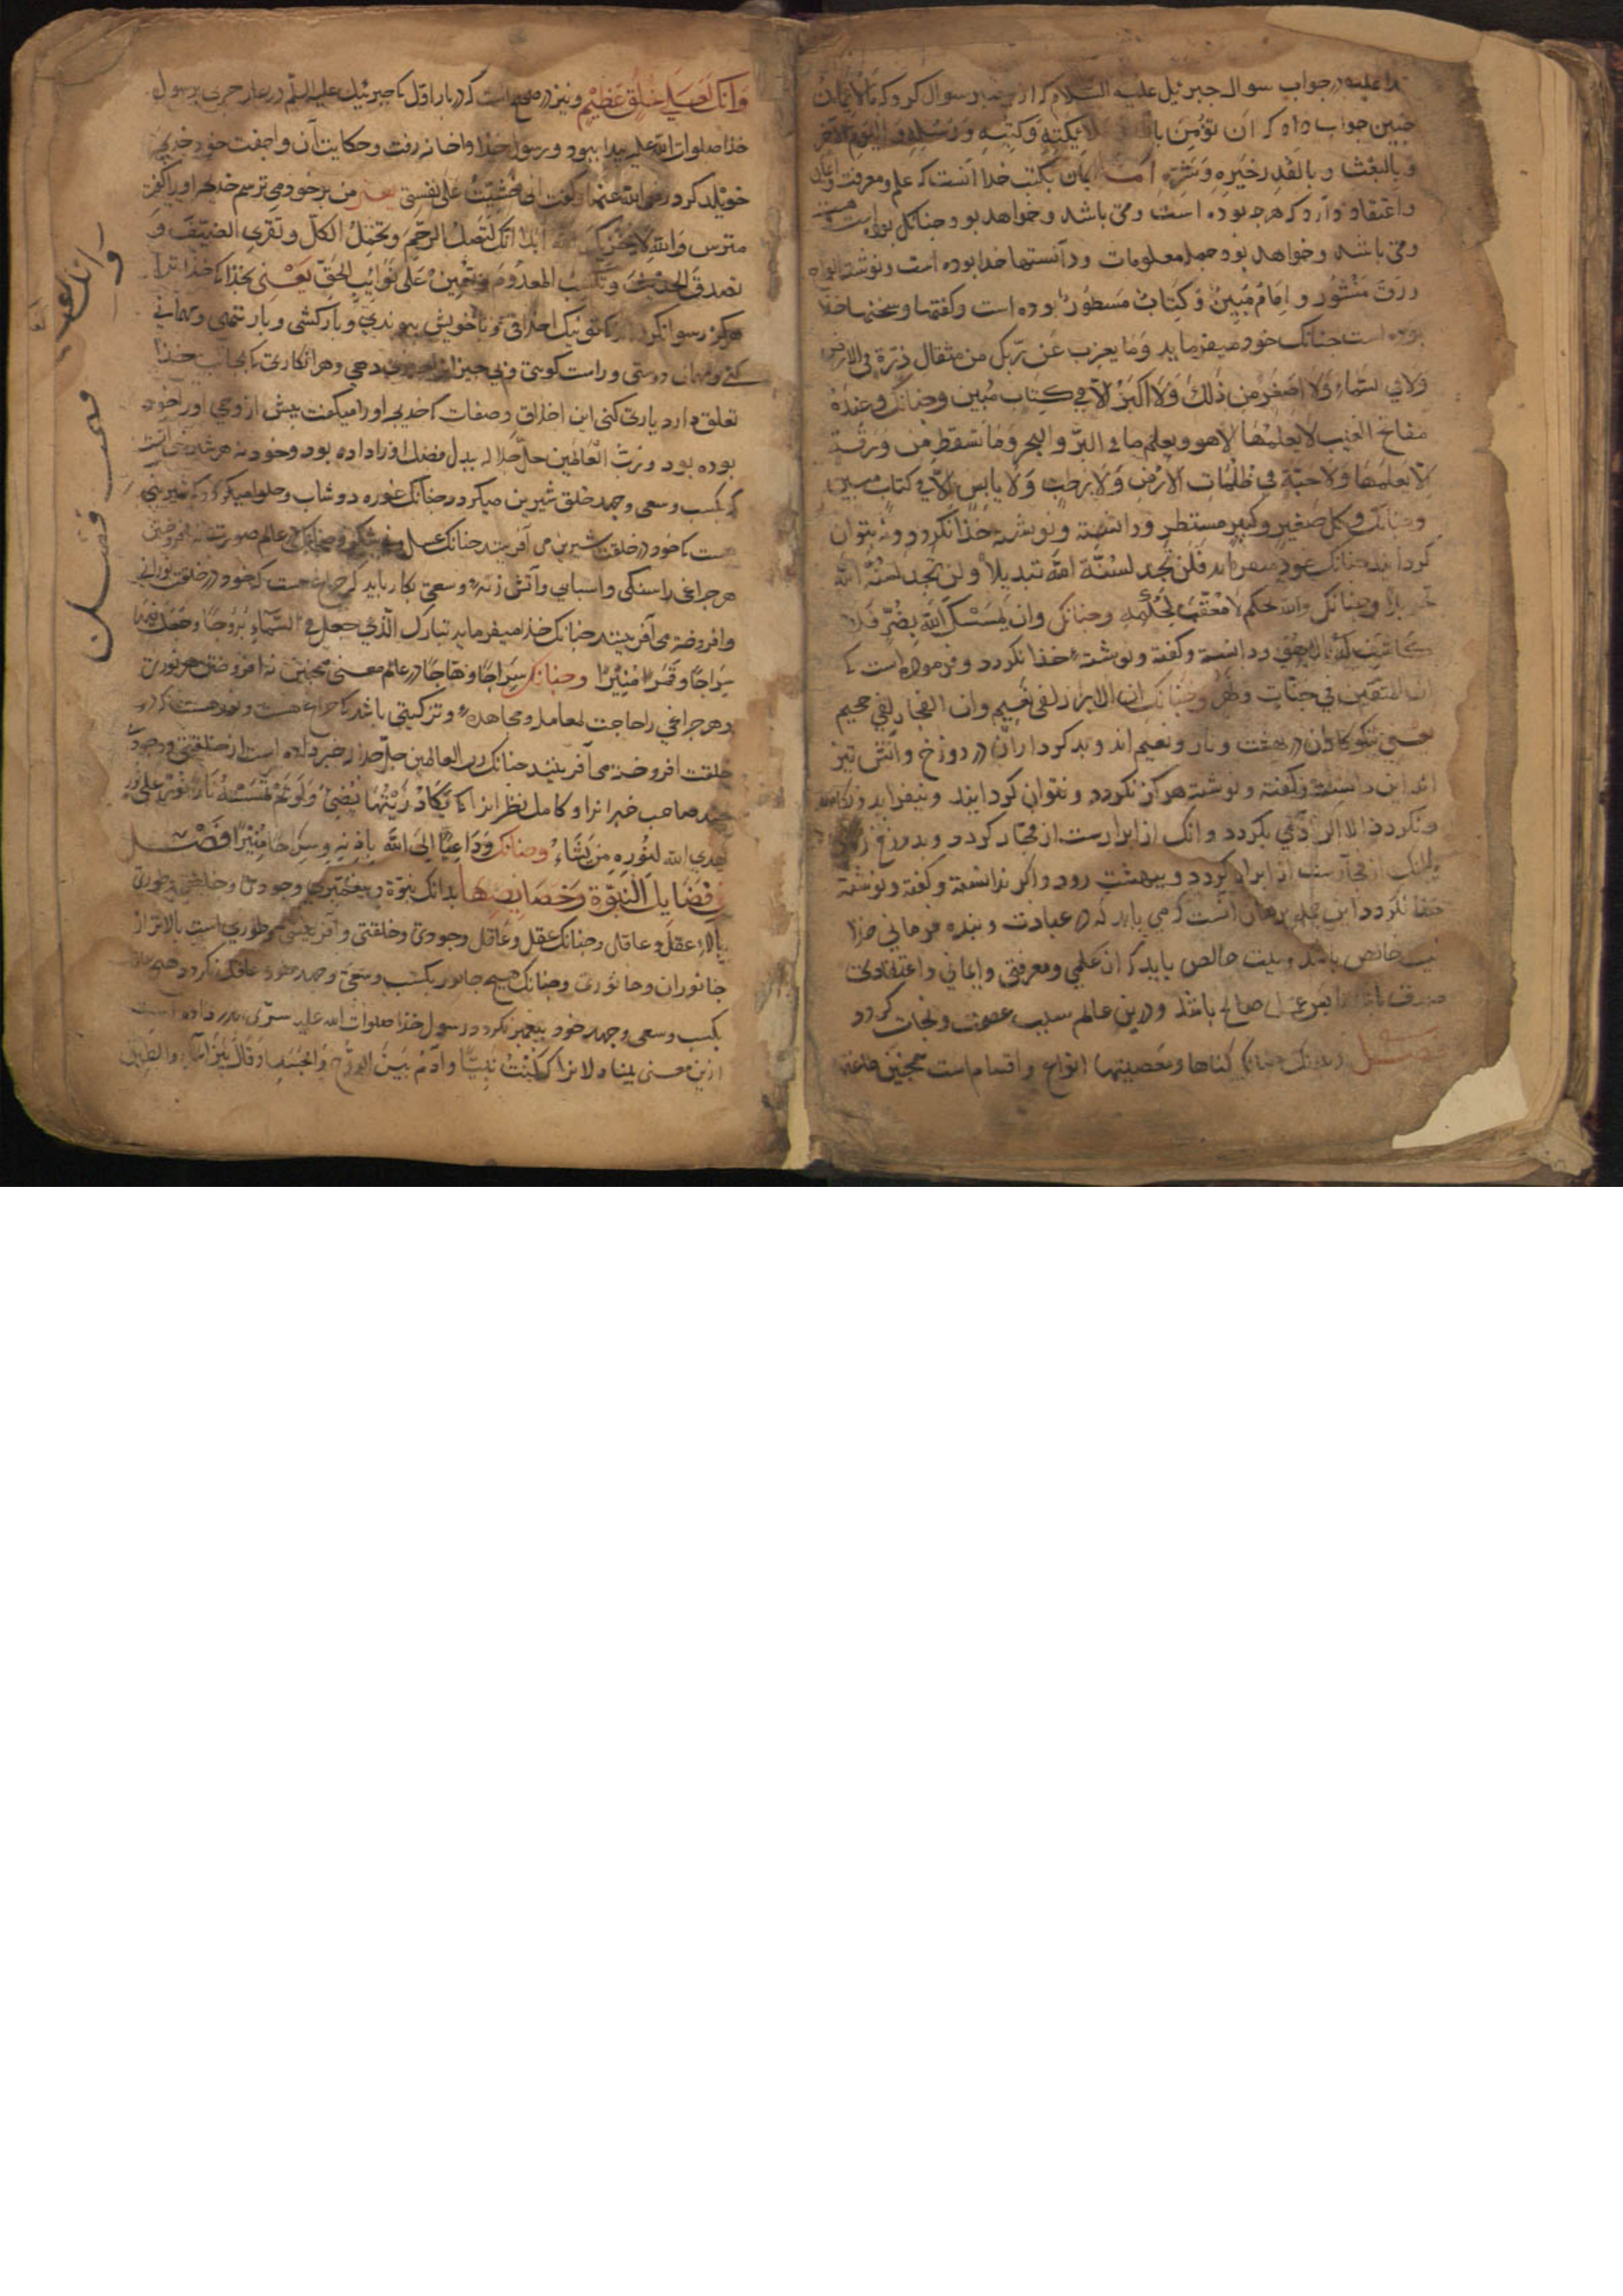 علیه در جواب سوال جبرئیل علیه السلام که از سوال کرد که ما الایمان
جنین جواب داد که ان تؤمن بالله وملائیکته وکتبه ورسله والیوم الآخر
وبالبعث وبالقدر خیره وشره اما ایمان بکتب خدا آنست که علم ومعرفت
واعتقاد دارد که هرجه بوده است ومی باشد وخواهد بود وجنانک بوده است
ومی باشد وخواهد بود جمله معلومات ودانستها خدا بوده است ونوشته
در رق منشور و امام مبین وکتاب مسطور بوده است وکفتها وسخنها خدا
بوده است جنانک خود میفرماید وما یعزب عن ربک من مثقال ذرة فی الارض
ولا فی السماء ولا اصغر من ذلک ولا اکبر الا فی کتاب مبین وجنانک وعنده
مفاتح الغیب لا یعلمها الا هو ویعلم ما فی البر والبحر وما تسقط من ورقة
الا یعلمها ولا حبة فی ظلمات الارض ولا رطب ولا یابس الا فی کتاب مبین
وجنانک وکل صغیر وکبیر مستطر ودانسته ونوشته خدا نکردد ونتوان
کردانید جنانک خود میفرماید فلن تجد لسنة الله تبدیلا ولن تجد لسنة الله
تحویلا وجنانک والله یحکم لا معقب لحکمه وجنانک وان یمسسک الله بضر فلا
کاشف له الا هو ودانسته وکفته ونوشته خدا نکردد وفرموده است که
ان المتقین فی جنات ونهر وجنانک ان الابرار لفی نعیم وان الفجار لفی جحیم
یعنی نیکوکاران در بهشت و ونعیم اند وبدکرداران در دوزخ وآتش تیز
اند این دانسته وکفته ونوشته هرکز نکردد ونتوان کردانید
ونکردد الا اکر آدمی بکردد وآنک از ابرارست از فجار کردد وبدوزخ رود
وآنک از فجارست از ابرار کردد وببهشت رود واکر نه دانسته وکفته ونوشته
خدا نکردد این جمله برهان آنست که می باید که در عبادت وبنده فرمانی خدا
نیت خالص باشد ونیت خالص باید که از علمی ومعرفتی وایمانی واعتقادی
صدق باشد تا عمل صالح باشد ودرین عالم سبب عصمت ونجات کردد
فصل بدانک کناها ومعصیتها انواع واقسام است همجنین
وانک لعلی خلق عظیم ونیز در صحیح است که در بار اول که جبرئیل علیه السلم در غار حری برسول
خدا صلوات الله علیه پیدا ببود ورسول خدا واخانه رفت وحکایت آن واجفت خود خدیجه
خویلد کرد رضی الله عنها وکفت انی خشیت علی نفسی یعنی من بر خود می ترسم خدیجه اورا کفت
مترس والله لا یحزنک الله ابدا انک لتصل الرحم وتحمل الکل وتقری الضیف و
تصدق الحدیث وتکسب المعدوم وتعین علی نوائب الحق یعنی بخدا که خدا ترا
هرکز رسوا نکرداند که تو نیک اخلاقی وباخویش بپیوندی وبارکشی وبار تنهی ومهمانی
کنی ومهمان دوستی وراست کوئی وبی جیزان را جیز دهی وهر آن کاری که بجانب خدا
تعلق دارد یاری کنی این اخلاق وصفات که خدیجه اورا میکفت پیش از وحی اورا خود
بوده بود ورب العالمین جل جلاله بدل فضل اورا داده بود وخود نه هر شیرینی آنست
که بکسب وسعی وجهد خلق شیرین میکردد جنانک غوره دوشاب وحلوا میکردد که شیرینی
هست که خود در خلقت شیرین می آفریند جنانک عسل وشکر وجنانک در عالم صورت نه افروختن
هر جراغی را سنکی واسبابی وآتش زنه وسعی بکار باید که جراغ هست که خود در خلقت نورانی
وافروخته می آفرینند جنانک خدا میفرماید تبارک الذی جعل فی السماء بروجا وجعل فیها
سراجا وقمرا منیرا وجنانک سراجا وهاجا در عالم معنی همجنین نه افروختن هر نوری
وهر جراغی را حاجت بمعامله ومجاهده وترکیبی باشد که جراغ هست ونور هست که در
خلقت افروخته می آفرینند جنانک رب العالمین جل جلاله خبر داده است از خلقتی ووجود
جند صاحب خبرانرا وکامل نظرانرا که یکاد زیتها یضیء ولو لم تمسسه نار نور علی نور
یهدی الله لنوره من یشاء وجنانک وداعیا الی الله باذنه وسراجا منیرا فصل
فی فضایل النبوة وخصایصها بدانک نبوة وپیغمبری وجودی وخلقتی وطوری
بالاء عقل وعاقل وجنانک عقل وعاقل وجودی وخلقتی وآفرینشی وطوری است بالاتر از
جانوران وجانوری وجنانک هیچ جانور بکسب وسعی وجهد خود عاقل نکردد هیچ عاقل
بکسب وسعی وجهد خود پیغمبر نکردد ورسول خدا صلوات الله علیه خبر داده است
ازین معنی بیناه دلانرا که کنت نبیا وآدم بین الروح والجسد وقال بین الماء والطین
وانک لعلی
فصل